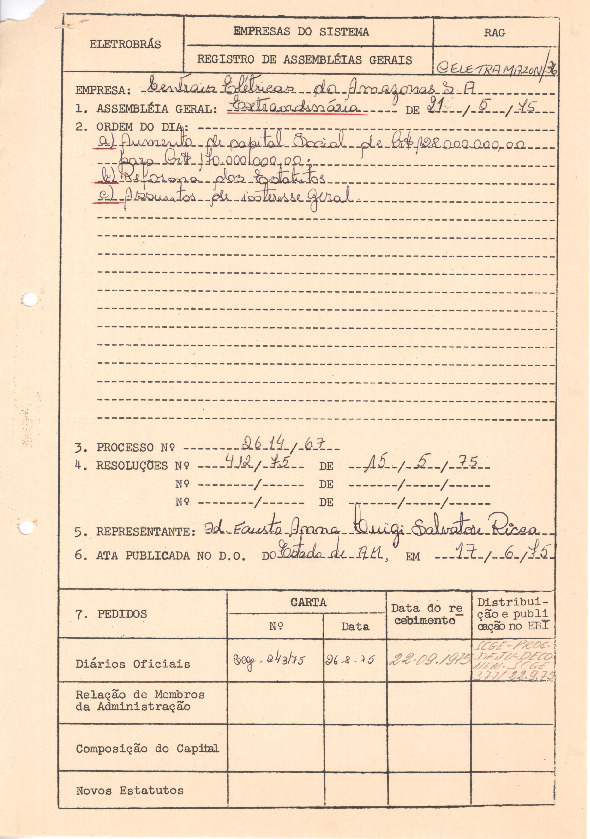 ELETROBRÁS
EMPRESAS DO SISTEMA
RAG
REGISTRO DE ASSEMBLÉIAS GERAIS
CELETRAMAZON/36
EMPRESA: Centrais Elétricas do Amazonas S.A
1. ASSEMBLÉIA GERAL: Extraordinária DE 21 / 5 / 75
2. ORDEM DO DIA:
a) Aumento de capital Social de Cr$ 128.000.000,00
para Cr$ 170.000.000,00;
b) Reforma dos Estatutos
c) Assuntos de interesse Geral.
3. PROCESSO Nº 2614/67
4. RESOLUÇÕES Nº 412/75 DE 15 / 5 / 75
Nº / DE / /
Nº / DE / /
5. REPRESENTANTE: Fausto Luigi Salvatore
6. ATA PUBLICADA NO D.O. DO Estado de AM, EM 17 / 6 / 75
7. PEDIDOS
CARTA
Nº
Data
Data do re
cebimento
Distribui-
ção e publi
cação no ERI
Diários Oficiais
243/75
26-8-75
22.09.1975
22.9.75
Relação de Membros
da Administração
Composição do Capital
Novos Estatutos